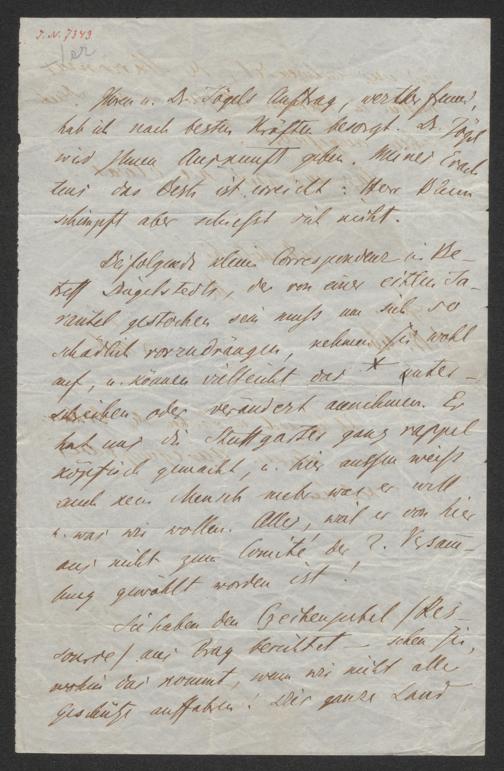 J. N. 7343
Ihren u. Dr. Togels Auftrag, werther Freund,
hab ich nach besten Kräften besorgt. Dr. Togel
wird Ihnen Auskunft geben. Meines Erach-
tens das Beste ist erreicht: Herr
schimpft aber schießt sich nicht.
Beifolgende kleine Correspondenz in Be-
treff Dingelstedts, der von einer eitlen Ta-
rantel gestochen sein muß um sich so
schädlich vorzudrängen, nehmen Sie wohl
auf, u. können vielleicht das * unter-
schreiben oder verändert annehmen. Er
hat uns die Stuttgarter ganz rappel
köpfisch gemacht, u. hier außen weiß
auch kein Mensch mehr was er will
u. was wir wollen. Alles, weil er von hier
aus nicht zum Comité der 2. Versam-
lung gewählt worden ist!
Sie haben den Czechenjubel (Res-
source) aus Prag berichtet – sehen Sie,
wohin das kommt, wenn wir nicht alle
Geschütze auffahren! Die ganze Land